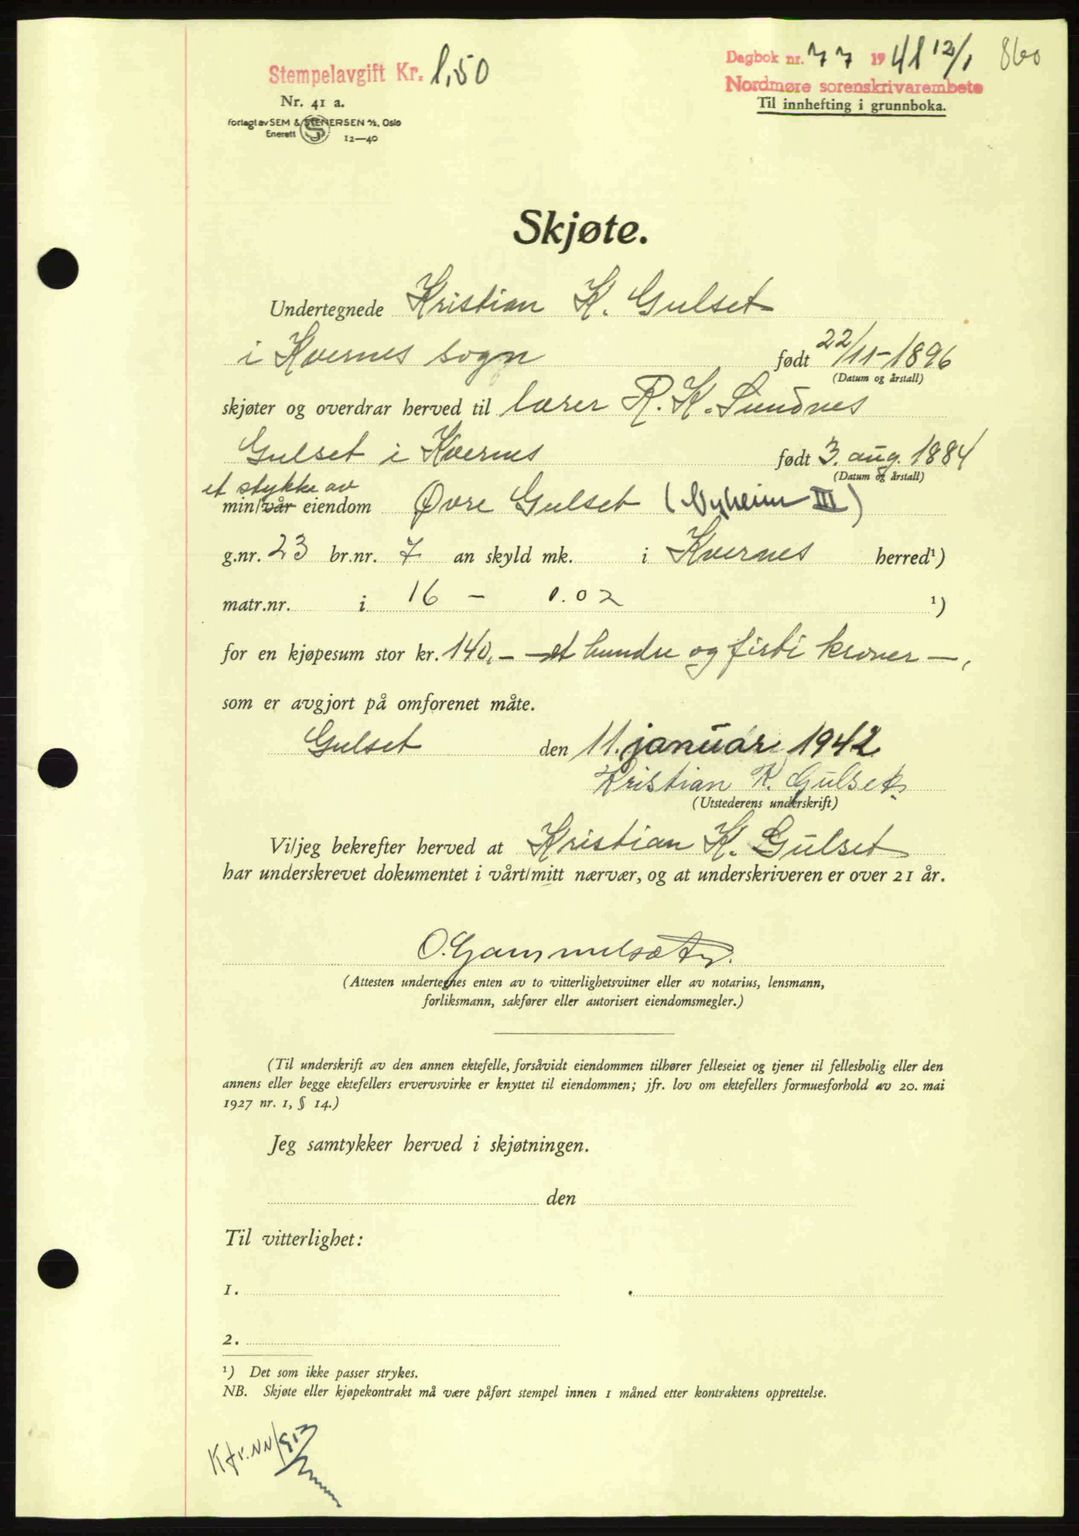 Stempelavgift Kr. 1,50
Nr. 41 a.
Forlagt av SEM & STENERSEN A/S, Oslo
Enerett 12—40
Dagbok nr. 77 1941 12/1 860
Nordmøre sorenskrivarembete
Til innhefting i grunnboka.
Skjøte.
Undertegnede Kristian K. Gulset
i Kvernes sogn født 22/11-1896
(Datum og årstall)
skjøter og overdrar herved til lærer R. K. Sundnes
Gulset i Kvernes født 3. aug. 1884
(Datum og årstall)
et stykke av
min/vår eiendom Øvre Gulset (Nyheim III)
g.nr. 23 br.nr. 7 an skyld mk. i Kvernes herred¹)
matr.nr. i 16 - 0.02 ¹)
for en kjøpesum stor kr. 140,- - et hundre og firti kroner -,
som er avgjort på omforenet måte.
Gulset den 11. januar 1942
Kristian K. Gulset.
(Utstederens underskrift)
Vi/jeg bekrefter herved at Kristian K. Gulset
har underskrevet dokumentet i vårt/mitt nærvær, og at underskriveren er over 21 år.
O. Gammelsæter.
(Attesten undertegnes enten av to vitterlighetsvitner eller av notarius, lensmann,
forliksmann, sakfører eller autorisert eiendomsmegler.)
(Til underskrift av den annen ektefelle, forsåvidt eiendommen tilhører felleseiet og tjener til fellesbolig eller den
annens eller begge ektefellers ervervsvirke er knyttet til eiendommen; jfr. lov om ektefellers formuesforhold av 20. mai
1927 nr. 1, § 14.)
Jeg samtykker herved i skjøtningen.
den
Til vitterlighet:
1.
2.
¹) Det som ikke passer strykes.
NB. Skjøte eller kjøpekontrakt må være påført stempel innen 1 måned etter kontraktens opprettelse.